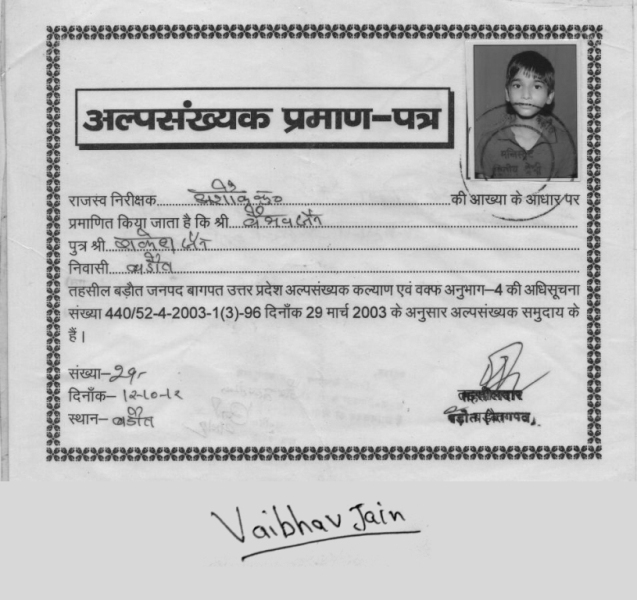 अल्पसंख्यक प्रमाण-पत्र
राजस्व निरीक्षक की आख्या के आधार पर
प्रमाणित किया जाता है कि श्री वैभव जैन
पुत्र श्री जैन
निवासी बड़ौत
तहसील बड़ौत जनपद बागपत उत्तर प्रदेश अल्पसंख्यक कल्याण एवं वक्फ अनुभाग-4 की अधिसूचना
संख्या 440/52-4-2003-1(3)-96 दिनाँक 29 मार्च 2003 के अनुसार अल्पसंख्यक समुदाय के
हैं।
संख्या-
दिनाँक- 12-10-12
स्थान- बड़ौत
तहसीलदार
बड़ौत (बागपत)
Vaibhav Jain